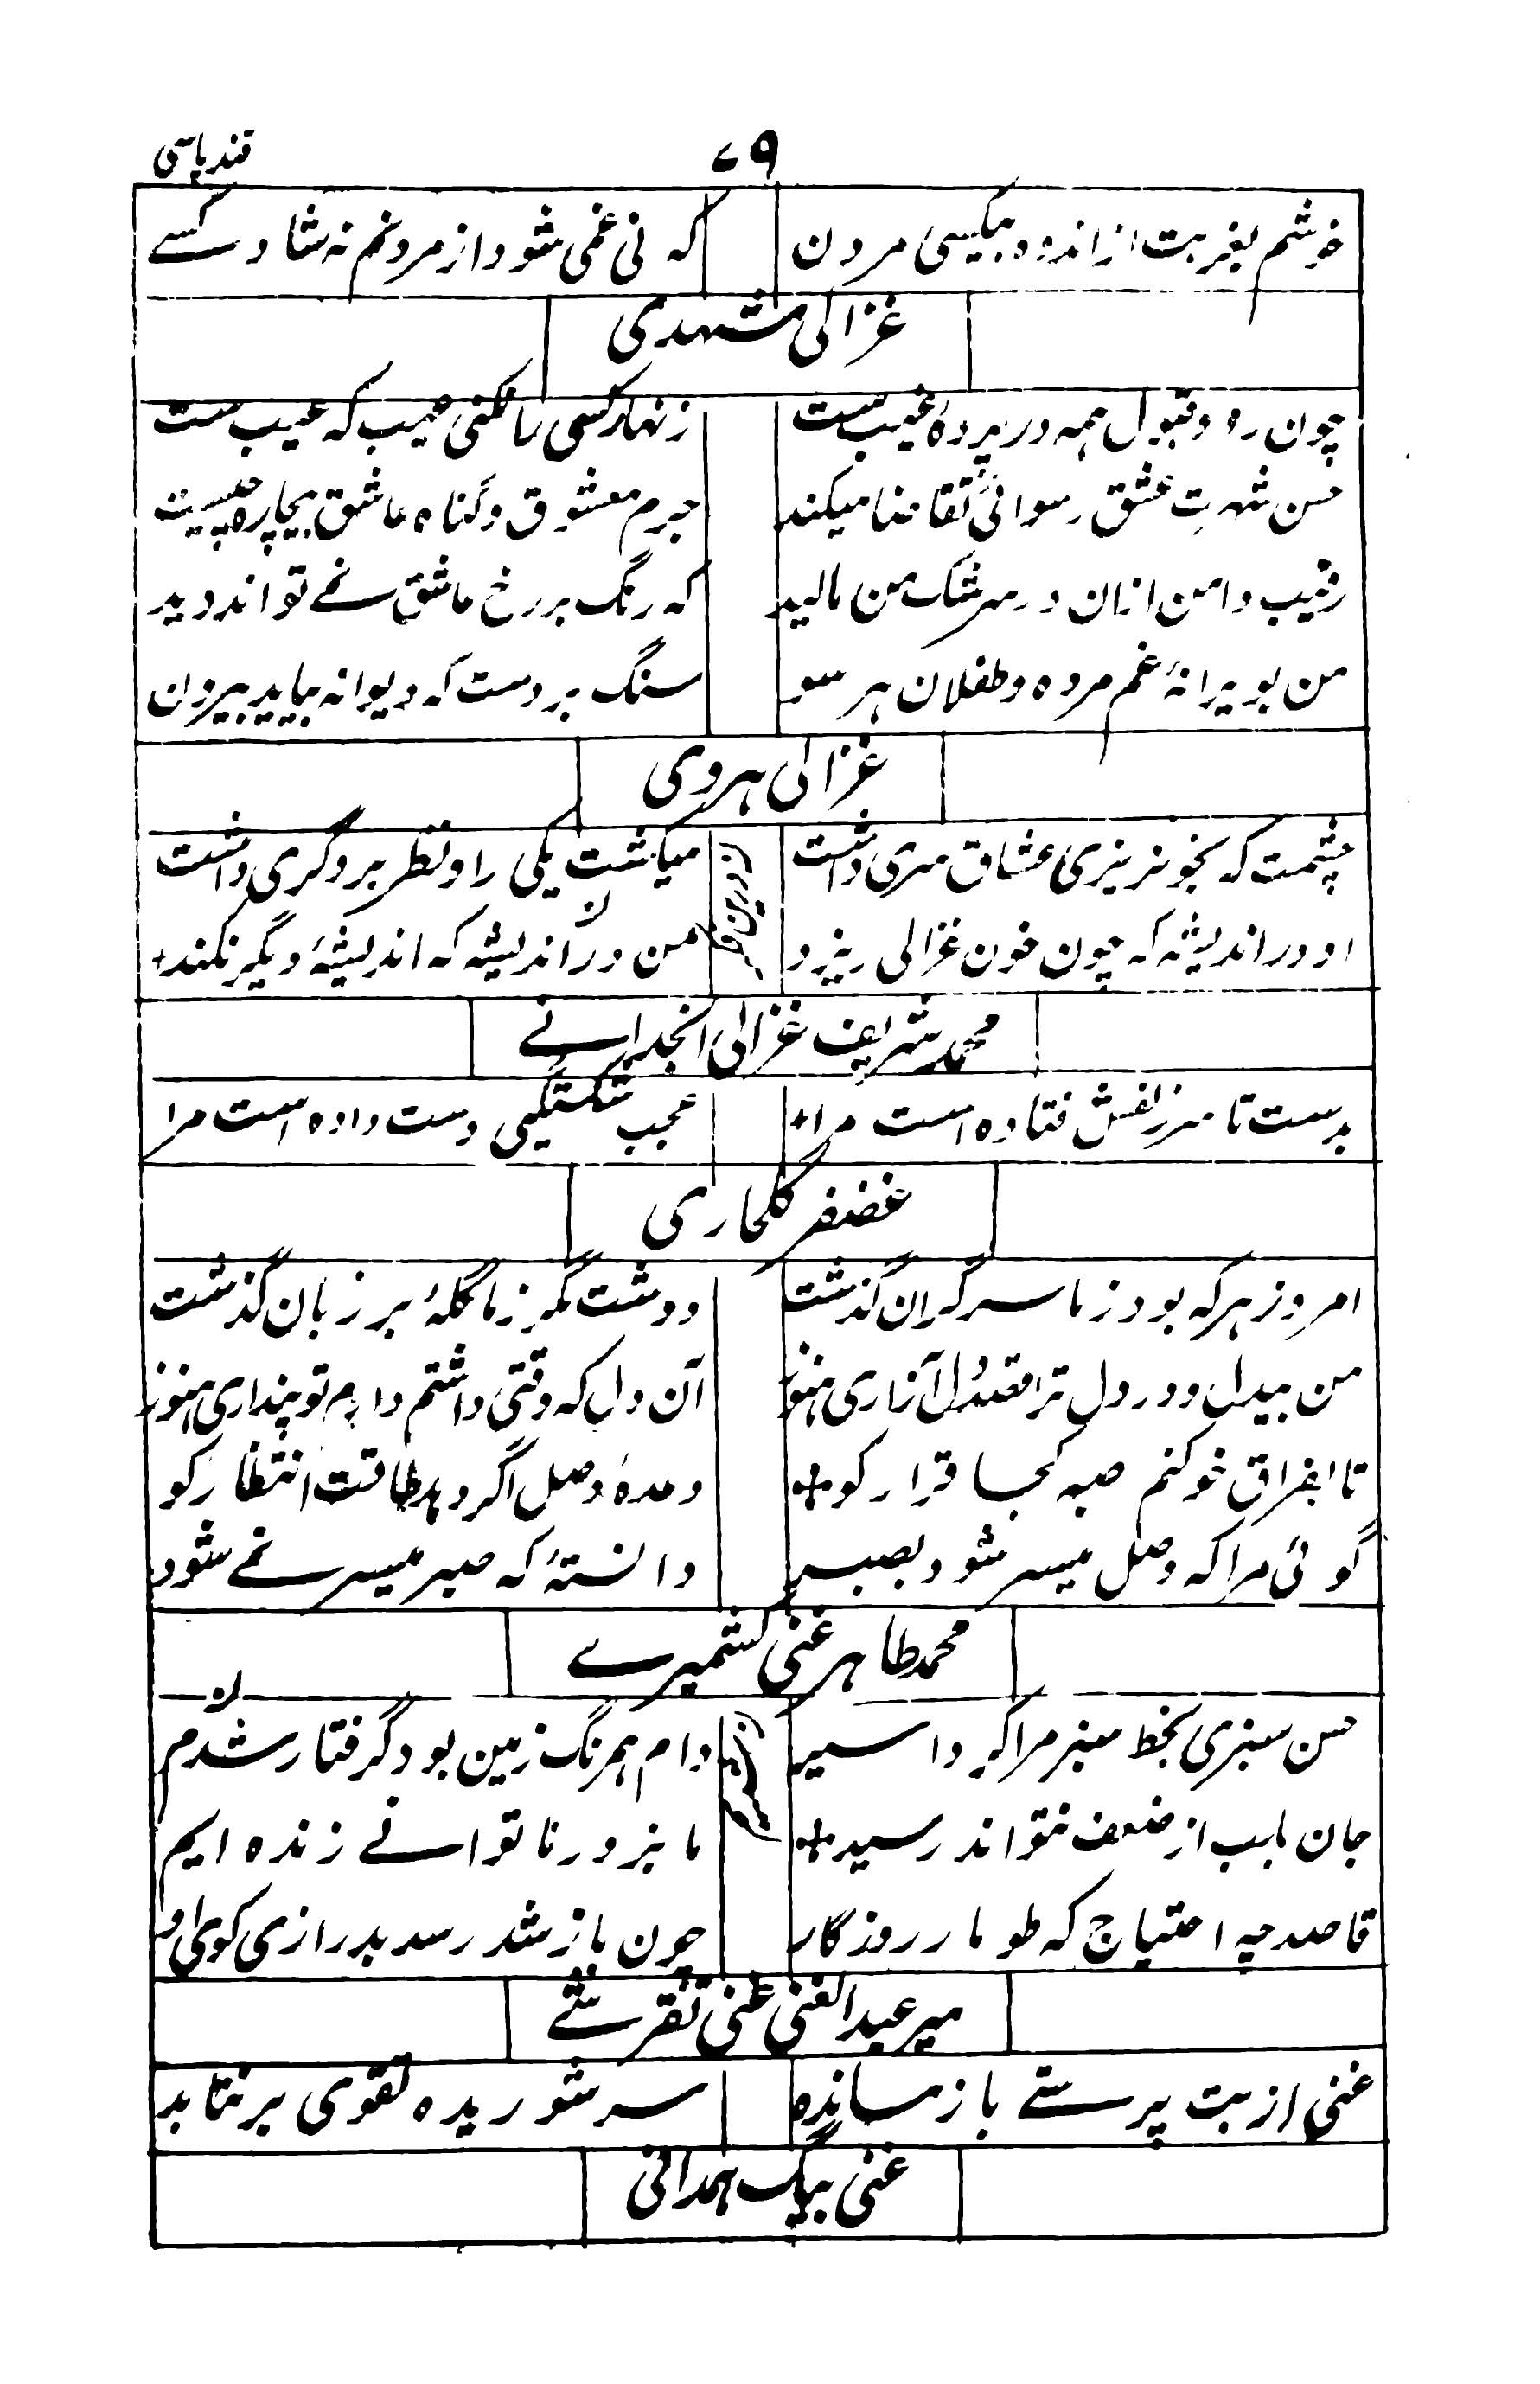 قند پارسی
۷۹
خوشم بغربت از اندوه بیکسی مردن
که نی غمی شود از مردنم نه شاد کسے
غزالی مشهدی
چون رد و قبول همه در پردهٔ غیب ست
زنهار کسی را نکنی عیب که عیب ست
حسن شهرت عشق رسوائی تقاضا میکند
جرم معشوق و گناه عاشق بیچاره چیست
رقیب دامن ازان در سرشک من مالید
که رنگ بر رخ عاشق نمے تواند دید
من بویرانهٔ غم مرده و طفلان هر سو
سنگ بر دست که دیوانه بیاید بیرون
غزالی هروی
چشمت که بخونریزی عشاق سری داشت
میکشت یکی را و نظر بر دگری داشت
او در اندیشه که چون خون غزالی ریزد
من در اندیشه که اندیشهٔ دیگر نکند
محمد شریف غزالی انجدانے
بدست تا سر زلفش فتاده است مرا
عجب شکستگیی دست داده است مرا
غضنفر گلجاری
امروز هر که بود ز ما سرگران گذشت
دوشت مگر ز ما گلهٔ بر زبان گذشت
من بیدل و در دل ترا قصد دل آزاری هنوز
آن دل که وقتی داشتم دارم تو پنداری هنوز
تا بفراق خو کنم صبر کجا قرار کو
وعدهٔ وصل اگر دهد طاقت انتظار کو
گوئی مرا که وصل میسر شود بصبر
دانستهٔ که صبر میسر نمے شود
محمد طاهر غنی کشمیرے
حسن سبزی بخط سبز مرا کرد اسیر
دام همرنگ زمین بود گرفتار شدم
جان بلب از ضعف نتواند رسید
ما بزور ناتوانے زنده ایم
قاصد چه احتیاج که طومار روزگار
چون باز شد رسد بدرازی کوی او
میر عبد الغنی غنی تفرشے
غنی از بت پرستے باز مانده
سر شوریده تقوی برنتابد
غنی بیگ همدانی